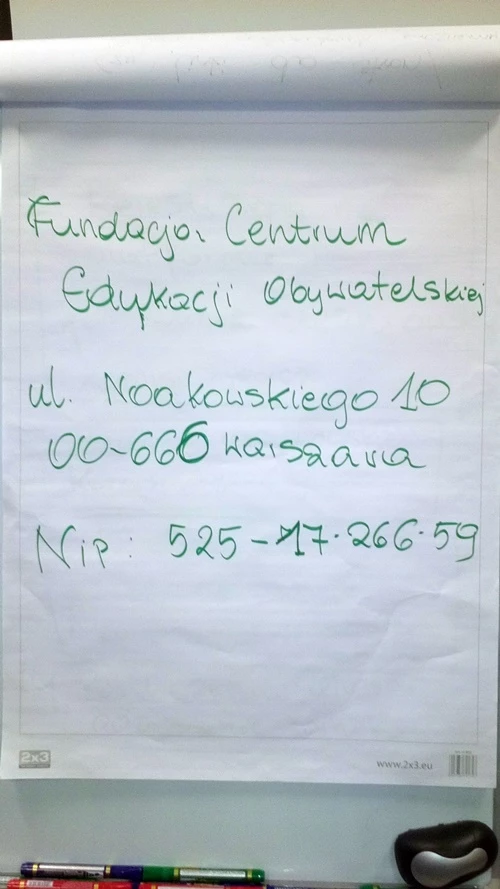 Fundacja Centrum
Edukacji Obywatelskiej
ul. Noakowskiego 10
00-666 Warszawa
Nip: 525-17-266-59
2x3
www.2x3.eu